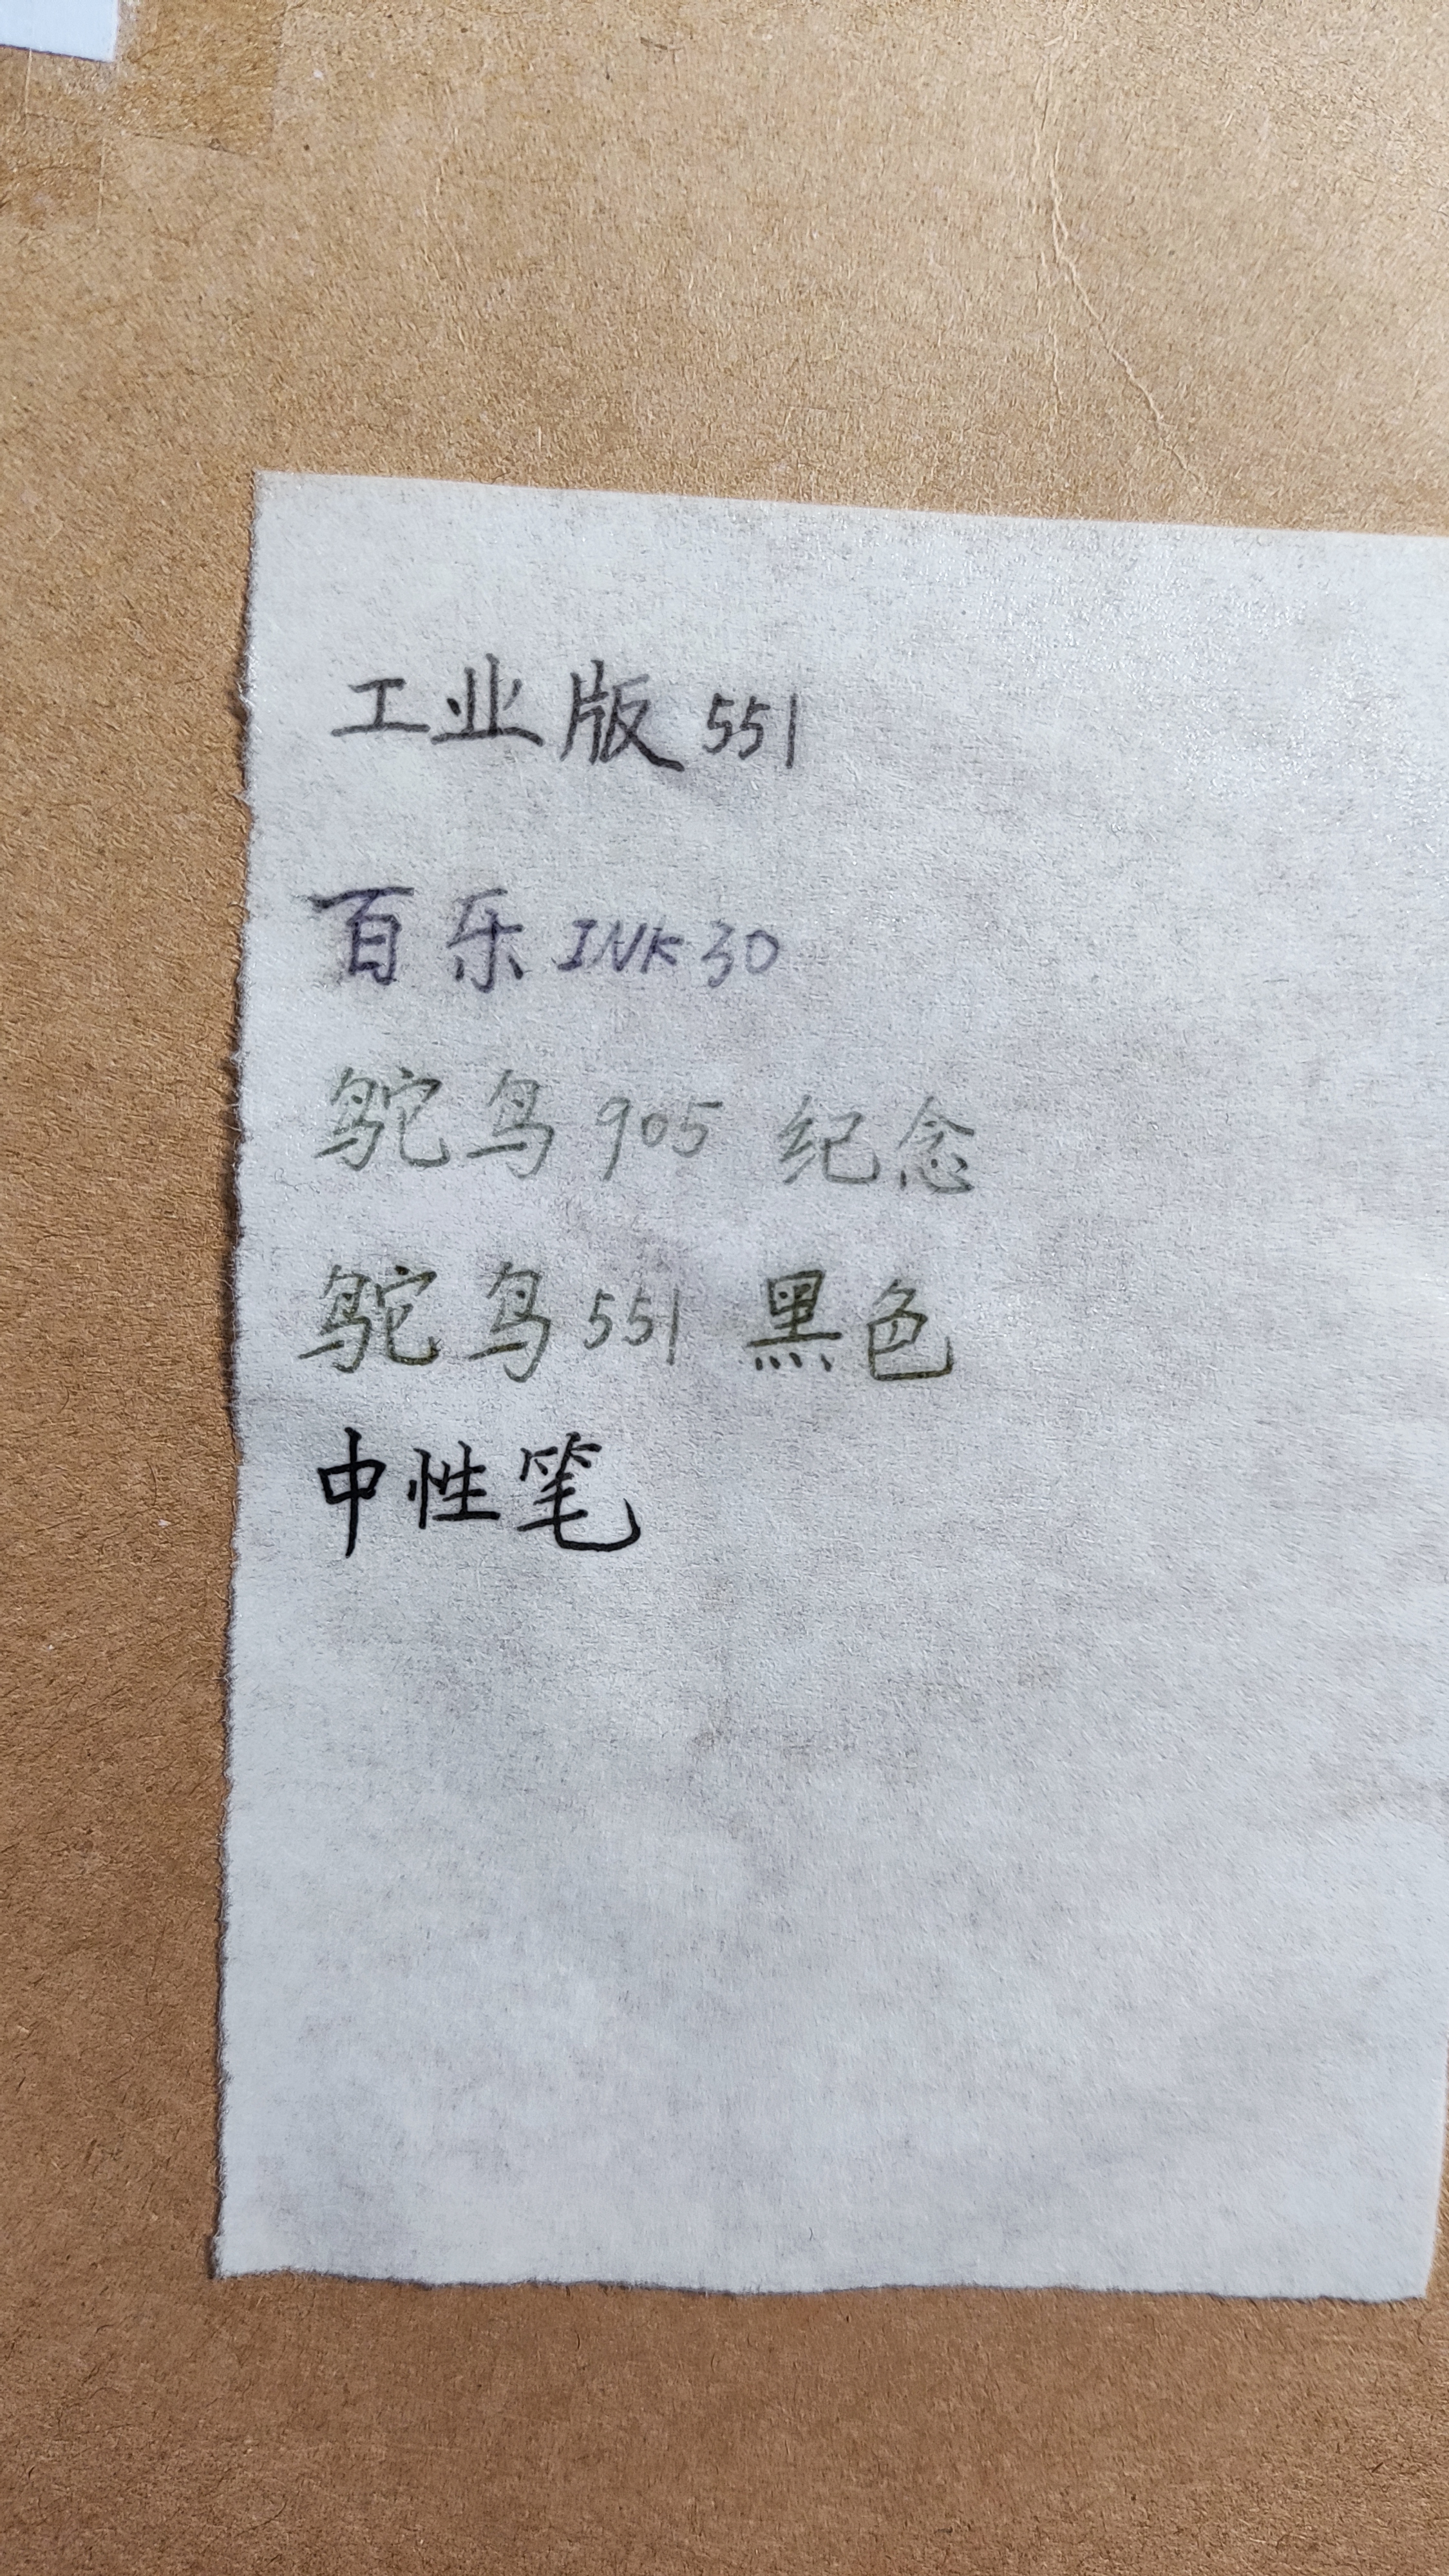 工业版 551
百乐 INK 30
鸵鸟 905 纪念
鸵鸟 551 黑色
中性笔